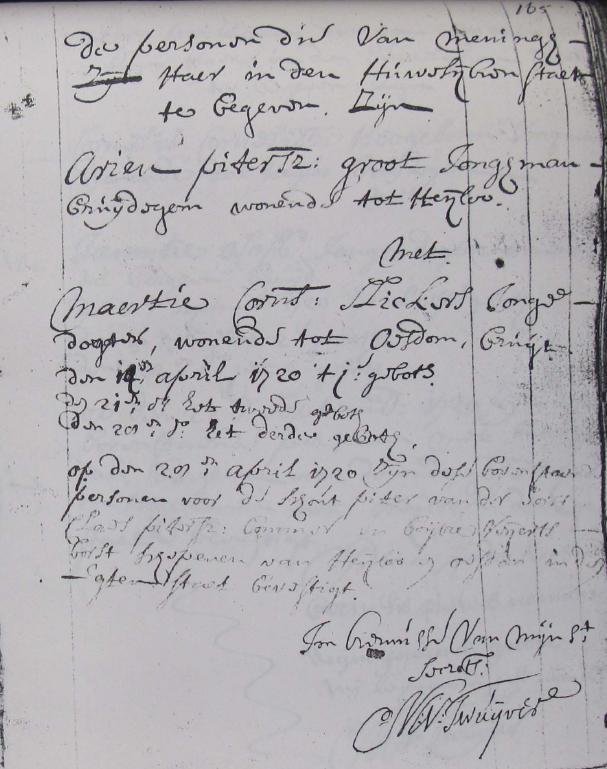 165
de personen die Van meninge
Zijn Haer in den Huwelijken staet
te begeven. Zijn
Arien pitersz: groot Jongman
bruijdegom wonende tot Heijloo.
Met.
Maertie Corns: Jonge
dogter, wonende tot Oesdom, bruijt
den 14en april 1720 t 1e gebodt.
de 21en do het tweede gebodt
den 28en do het derde gebodt.
op den 28en april 1720 Zijn dese bovenstaende
personen voor de schout piter van der
Claes pitersz: Commer en
schepenen van Heijloo in den
Egten staet bevestigt
In kennisse Van mijn
Secrets: